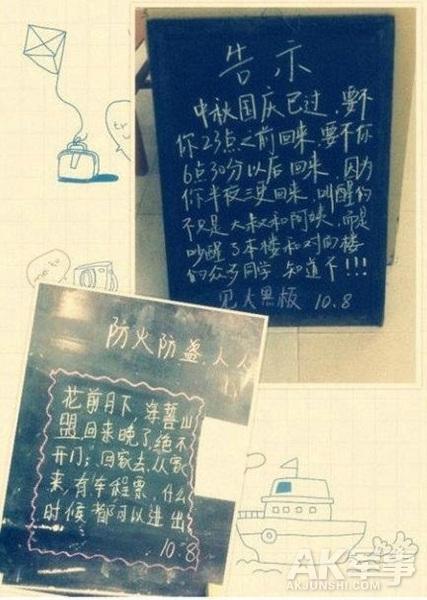 告示
中秋国庆已过,要不
你23点之前回来,要不你
6点30分以后回来,因为
你半夜三更回来,叫醒的
不只是大叔和阿姨,而是
吵醒了本楼和对的楼
的众多同学 知道下!!!
见大黑板 10.8
防火防盗,人人
花前月下,海誓山
盟回来晚了,绝不
开门;回家去,从家
来,有车程票,什么
时候都可以进出
10.8
tr
AK军事
AKJUNSHI.COM